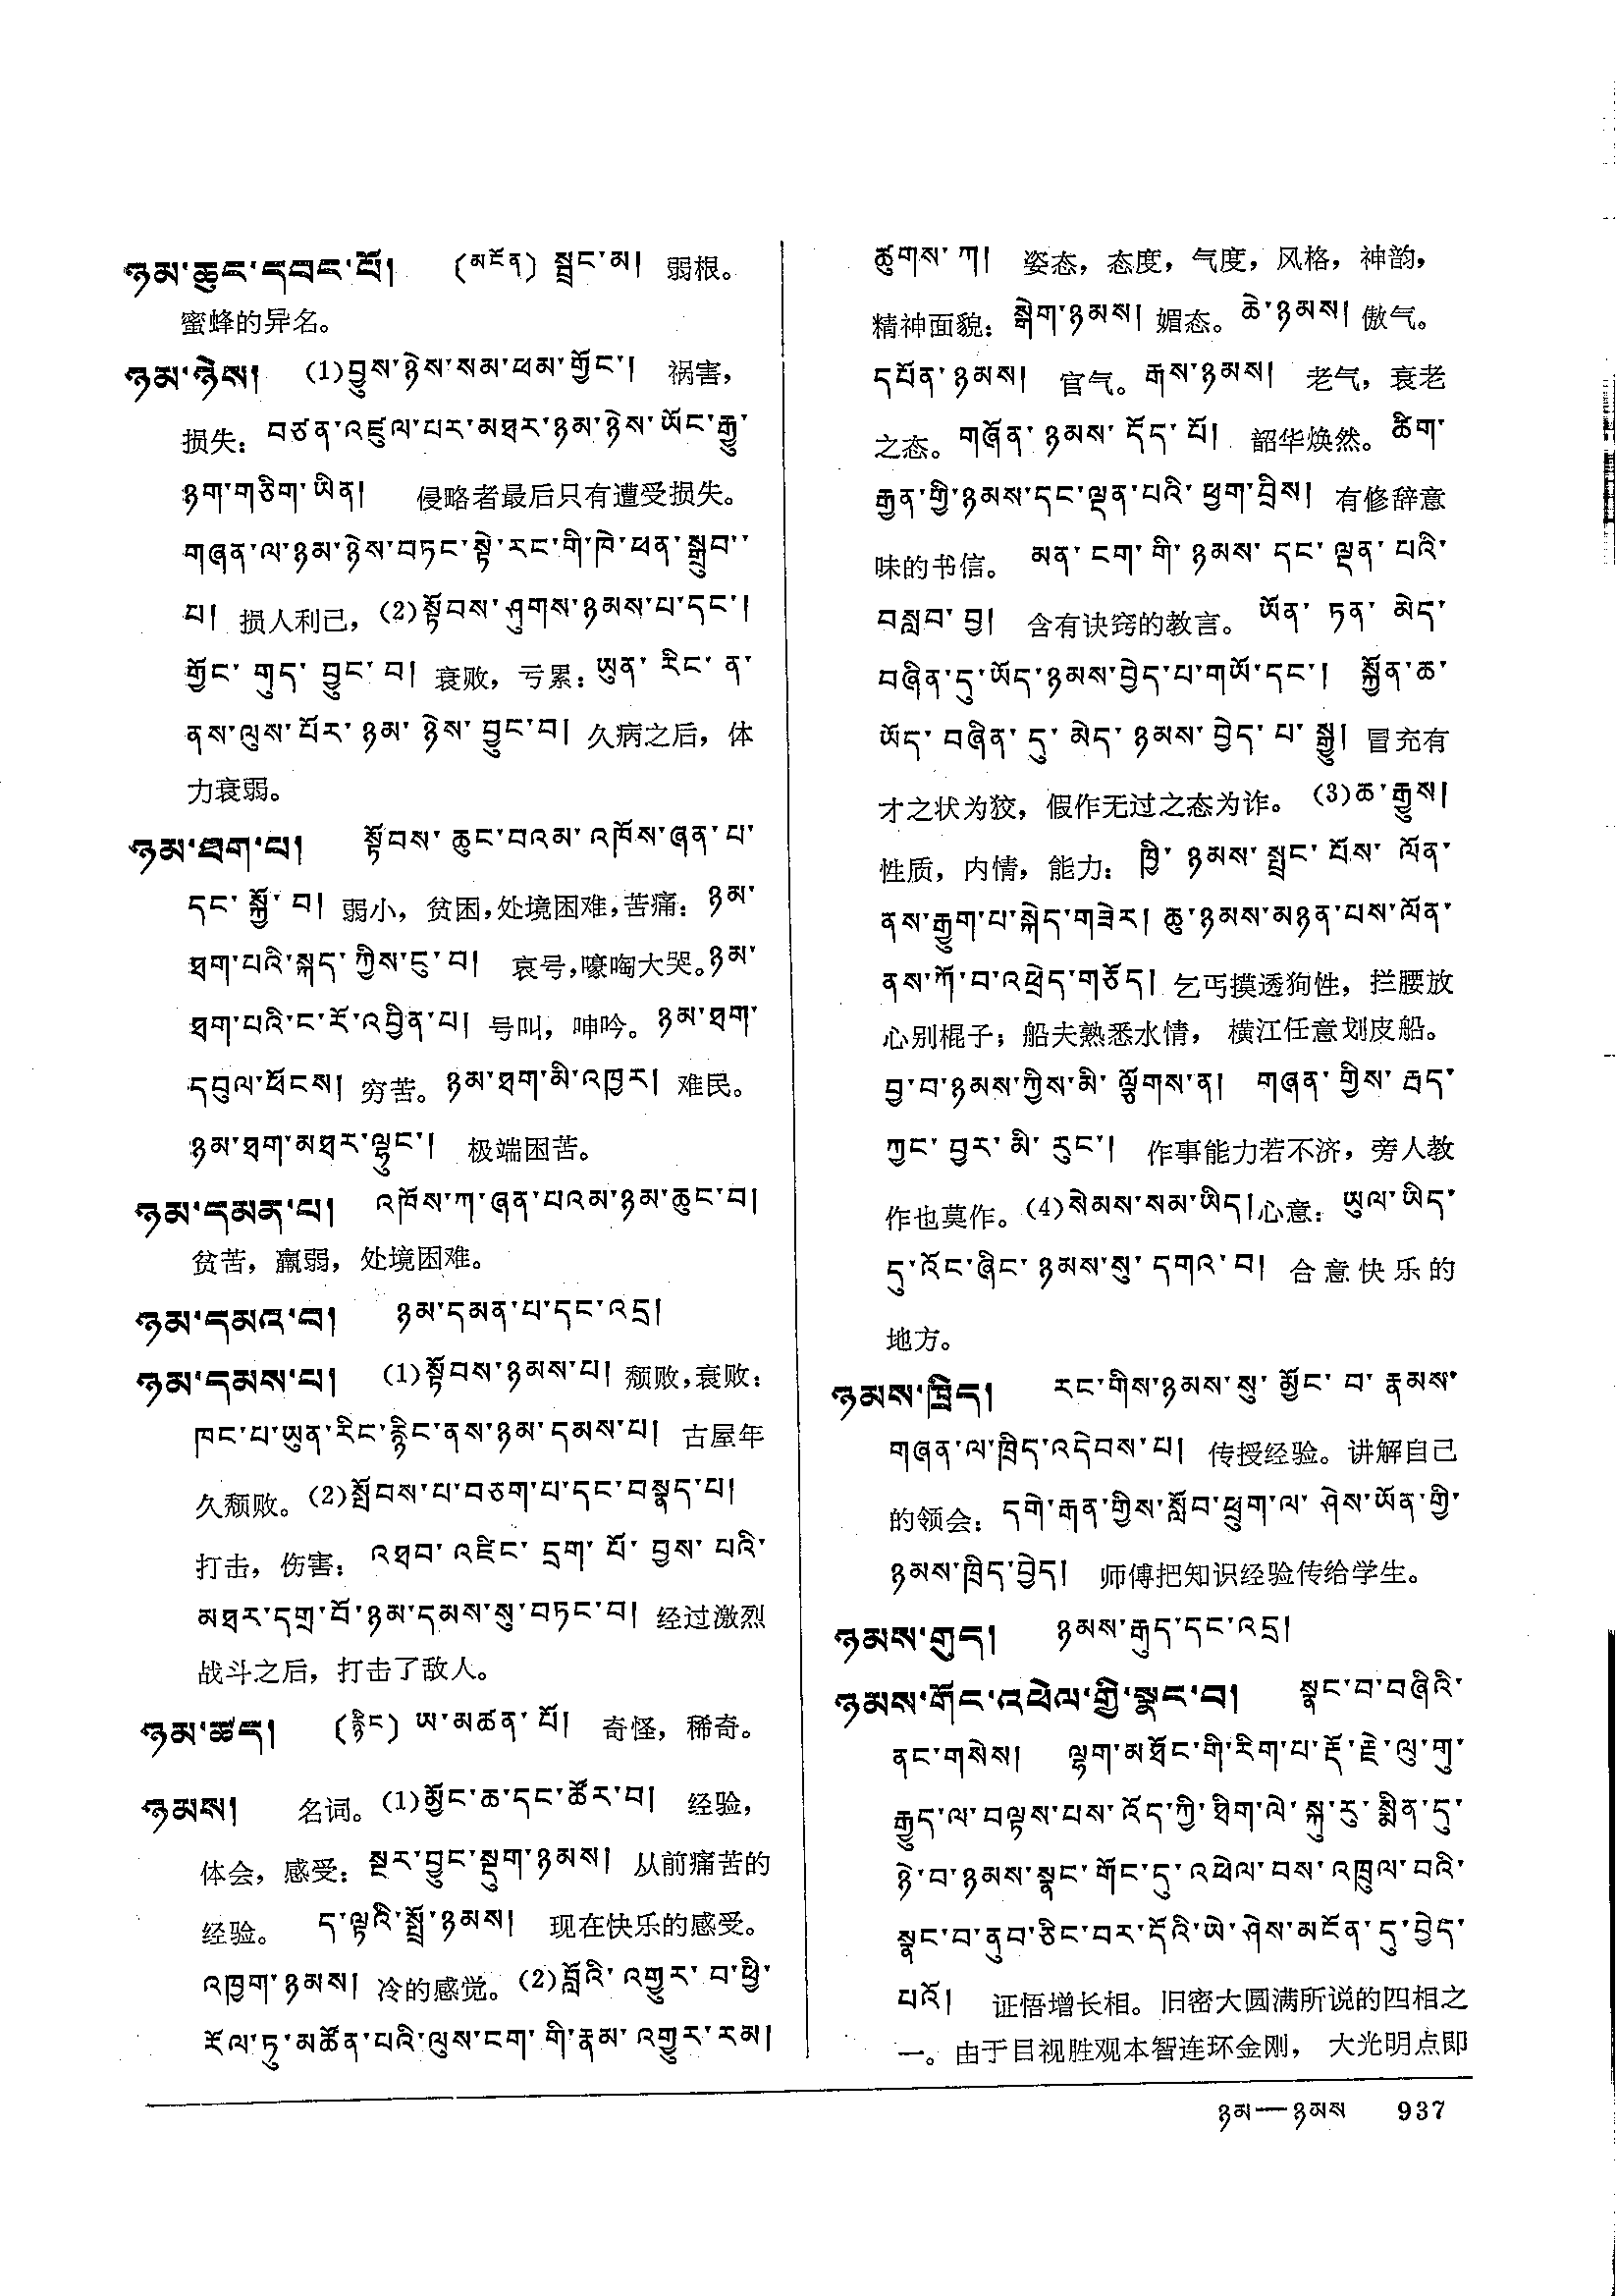 ཉམ་ཆུང་དབང་པོ། (མངོན) སྦྲང་མ། 弱根。
蜜蜂的异名。
ཉམ་ཉེས། (1)བྱུས་ཉེས་སམ་ཕམ་གྱོང་། 祸害，
损失：བཙན་འཛུལ་པར་མཐར་ཉམ་ཉེས་ཡོང་རྒྱུ་
ཉག་གཅིག་ཡིན། 侵略者最后只有遭受损失。
གཞན་ལ་ཉམ་ཉེས་བཏང་སྟེ་རང་གི་ཁེ་ཕན་སྒྲུབ་
པ། 损人利己，(2)སྟོབས་ཤུགས་ཉམས་པ་དང་།
གྱོང་གུད་བྱུང་བ། 衰败，亏累：ཡུན་རིང་ན་
ནས་ལུས་པོར་ཉམ་ཉེས་བྱུང་བ། 久病之后，体
力衰弱。
ཉམ་ཐག་པ། སྟོབས་ཆུང་བའམ་འཁོས་ཞན་པ་
དང་སྐྱོ་བ། 弱小，贫困，处境困难，苦痛：ཉམ་
ཐག་པའི་སྐད་ཀྱིས་ངུ་བ། 哀号，嚎啕大哭。ཉམ་
ཐག་པའི་ང་རོ་འབྱིན་པ། 号叫，呻吟。ཉམ་ཐག་
དབུལ་ཕོངས། 穷苦。ཉམ་ཐག་མི་འཁྱར། 难民。
ཉམ་ཐག་མཐར་ལྷུང་། 极端困苦。
ཉམ་དམན་པ། འཁོས་ཀ་ཞན་པའམ་ཉམ་ཆུང་བ།
贫苦，羸弱，处境困难。
ཉམ་དམའ་བ། ཉམ་དམན་པ་དང་འདྲ།
ཉམ་དམས་པ། (1)སྟོབས་ཉམས་པ། 颓败，衰败：
ཁང་པ་ཡུན་རིང་རྙིང་ནས་ཉམ་དམས་པ། 古屋年
久颓败。(2)སྤོབས་པ་བཅག་པ་དང་བསྣད་པ།
打击，伤害：འཐབ་འཛིང་དྲག་པོ་བྱས་པའི་
མཐར་དགྲ་བོ་ཉམ་དམས་སུ་བཏང་བ། 经过激烈
战斗之后，打击了敌人。
ཉམ་ཚད། (རྙིང) ཨ་མཚན་པོ། 奇怪，稀奇。
ཉམས། 名词。(1)མྱོང་ཆ་དང་ཚོར་བ། 经验，
体会，感受：སྔར་བྱུང་སྡུག་ཉམས། 从前痛苦的
经验。 ད་ལྟའི་སྤྲོ་ཉམས། 现在快乐的感受。
འཁྱག་ཉམས། 冷的感觉。(2)བློའི་འགྱུར་བ་ཕྱི་
རོལ་ཏུ་མཚོན་པའི་ལུས་ངག་གི་རྣམ་འགྱུར་རམ།
ཚུགས་ཀ། 姿态，态度，气度，风格，神韵，
精神面貌：སྒེག་ཉམས། 媚态。ཆེ་ཉམས། 傲气。
དཔོན་ཉམས། 官气。རྒས་ཉམས། 老气，衰老
之态。གཞོན་ཉམས་དོད་པོ། 韶华焕然。ཚིག་
རྒྱན་གྱི་ཉམས་དང་ལྡན་པའི་ཕྱག་བྲིས། 有修辞意
味的书信。 མན་ངག་གི་ཉམས་དང་ལྡན་པའི་
བསླབ་བྱ། 含有诀窍的教言。 ཡོན་ཏན་མེད་
བཞིན་དུ་ཡོད་ཉམས་བྱེད་པ་གཡོ་དང་། སྐྱོན་ཆ་
ཡོད་བཞིན་དུ་མེད་ཉམས་བྱེད་པ་སྒྱུ། 冒充有
才之状为狡，假作无过之态为诈。(3)ཆ་རྒྱུས།
性质，内情，能力：ཁྱི་ཉམས་སྤྲང་པོས་ལོན་
ནས་རྒྱུག་པ་སྐེད་གཟེར། ཆུ་ཉམས་མཉན་པས་ལོན་
ནས་ཀོ་བ་འཕྲེད་གཅོད། 乞丐摸透狗性，拦腰放
心别棍子；船夫熟悉水情，横江任意划皮船。
བྱ་བ་ཉམས་ཀྱིས་མི་ལྕོགས་ན། གཞན་གྱིས་རྒད་
ཀྱང་བྱར་མི་རུང་། 作事能力若不济，旁人教
作也莫作。(4)སེམས་སམ་ཡིད། 心意：ཡུལ་ཡིད་
དུ་འོང་ཞིང་ཉམས་སུ་དགའ་བ། 合意快乐的
地方。
ཉམས་ཁྲིད། རང་གིས་ཉམས་སུ་མྱོང་བ་རྣམས་
གཞན་ལ་ཁྲིད་འདེབས་པ། 传授经验。讲解自己
的领会：དགེ་རྒན་གྱིས་སློབ་ཕྲུག་ལ་ཤེས་ཡོན་གྱི་
ཉམས་ཁྲིད་བྱེད། 师傅把知识经验传给学生。
ཉམས་གུད། ཉམས་རྒུད་དང་འདྲ།
ཉམས་གོང་འཕེལ་གྱི་སྣང་བ། སྣང་བ་བཞིའི་
ནང་གསེས། ལྷག་མཐོང་གི་རིག་པ་རྡོ་རྗེ་ལུ་གུ་
རྒྱུད་ལ་བལྟས་པས་འོད་ཀྱི་ཐིག་ལེ་སྐུ་རུ་སྨིན་དུ་
ཉེ་བ་ཉམས་སྣང་གོང་དུ་འཕེལ་བས་འཁྲུལ་བའི་
སྣང་བ་ནུབ་ཅིང་བར་དོའི་ཡེ་ཤེས་མངོན་དུ་བྱེད་
པའོ། 证悟增长相。旧密大圆满所说的四相之
一。由于目视胜观本智连环金刚，大光明点即
ཉམ—ཉམས 937